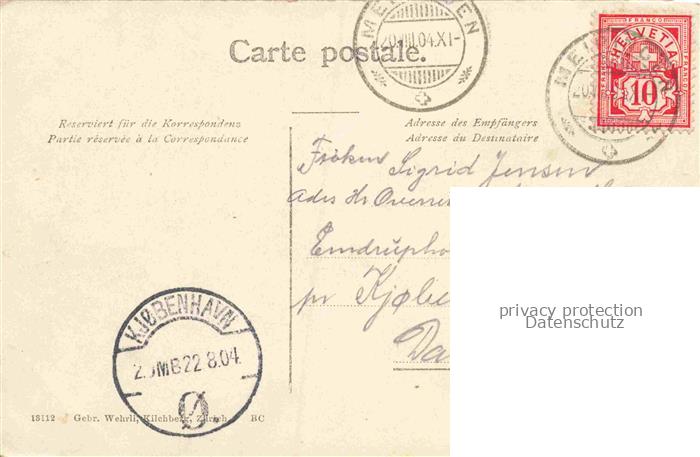 Carte postale.
MEI EN
20.VIII.04.XI-
FRANCO
HELVETIA
10
Reserviert für die Korrespondenz
Partie réservée à la Correspondance
Adresse des Empfängers
Adresse du Destinataire
Fröken Sigrid Jensen
Adrs Hr
Emdruph
pr Kjø
Da
privacy protection
Datenschutz
KJØBENHAVN
2. MB 22 8.04.
Ø
13112 Gebr. Wehrli, Kilchberg, Zürich BC